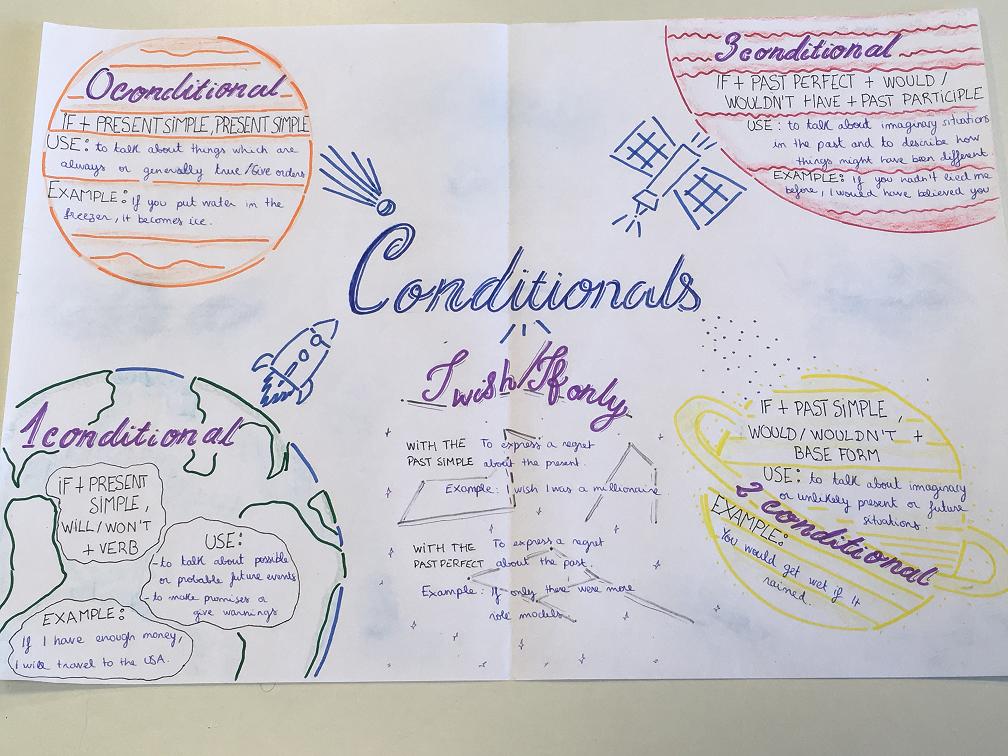 0 conditional
IF + PRESENT SIMPLE, PRESENT SIMPLE
USE: to talk about things which are
always or generally true/Give orders
EXAMPLE: If you put water in the
freezer, it becomes ice.
3 conditional
IF + PAST PERFECT + WOULD /
WOULDN'T HAVE + PAST PARTICIPLE
USE: to talk about imaginary situations
in the past and to describe how
things might have been different.
EXAMPLE: If you hadn't lied me
before, I would have believed you
Conditionals
1 conditional
IF + PRESENT
SIMPLE,
WILL/WON'T
+ VERB
USE:
- to talk about possible
or probable future events
- to make promises or
give warnings
EXAMPLE:
If I have enough money,
I will travel to the USA.
I wish/If only
WITH THE
PAST SIMPLE
To express a regret
about the present.
Example: I wish I was a millionaire
WITH THE
PAST PERFECT
To express a regret
about the past.
Example: If only there were more
role models.
IF + PAST SIMPLE,
WOULD/WOULDN'T +
BASE FORM
USE: to talk about imaginary
or unlikely present or future
situations.
2 conditional
EXAMPLE:
You would get wet if it
rained.